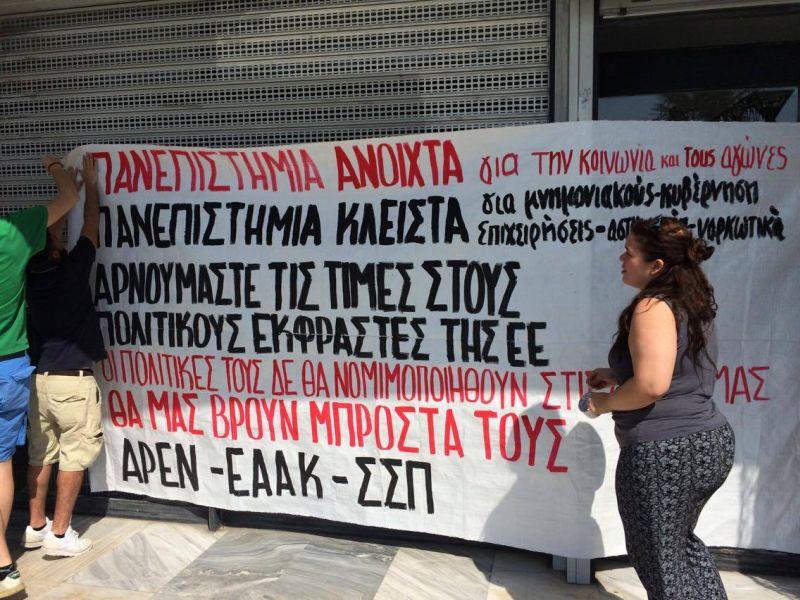 ΠΑΝΕΠΙΣΤΗΜΙΑ ΑΝΟΙΧΤΑ για την κοινωνία και τους αγώνες
ΠΑΝΕΠΙΣΤΗΜΙΑ ΚΛΕΙΣΤΑ για μνημονιακούς-κυβέρνηση
επιχειρήσεις - ναρκωτικά
ΑΡΝΟΥΜΑΣΤΕ ΤΙΣ ΤΙΜΕΣ ΣΤΟΥΣ
ΠΟΛΙΤΙΚΟΥΣ ΕΚΦΡΑΣΤΕΣ ΤΗΣ ΕΕ
ΟΙ ΠΟΛΙΤΙΚΕΣ ΤΟΥΣ ΔΕ ΘΑ ΝΟΜΙΜΟΠΟΙΗΘΟΥΝ ΜΑΣ
ΘΑ ΜΑΣ ΒΡΟΥΝ ΜΠΡΟΣΤΑ ΤΟΥΣ
ΑΡΕΝ - ΕΑΑΚ - ΣΣΠ